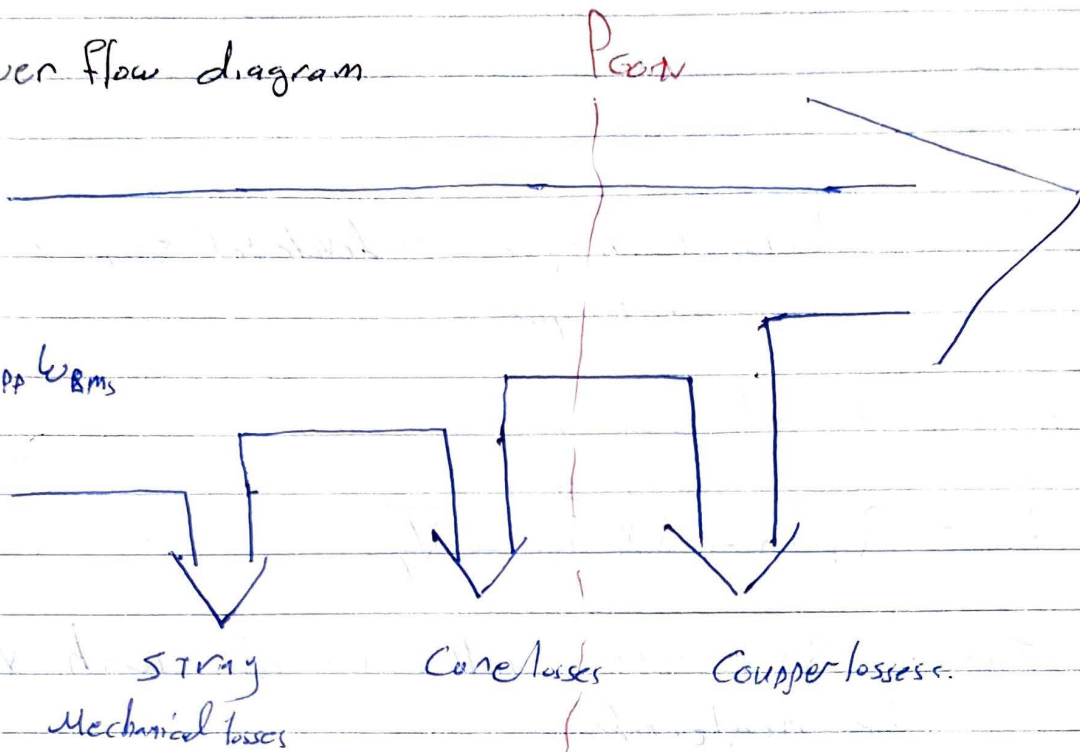 wer flow diagram
Pconv
PP ωBms
STray
Mechanical losses
Core losses
Coupper lossess.